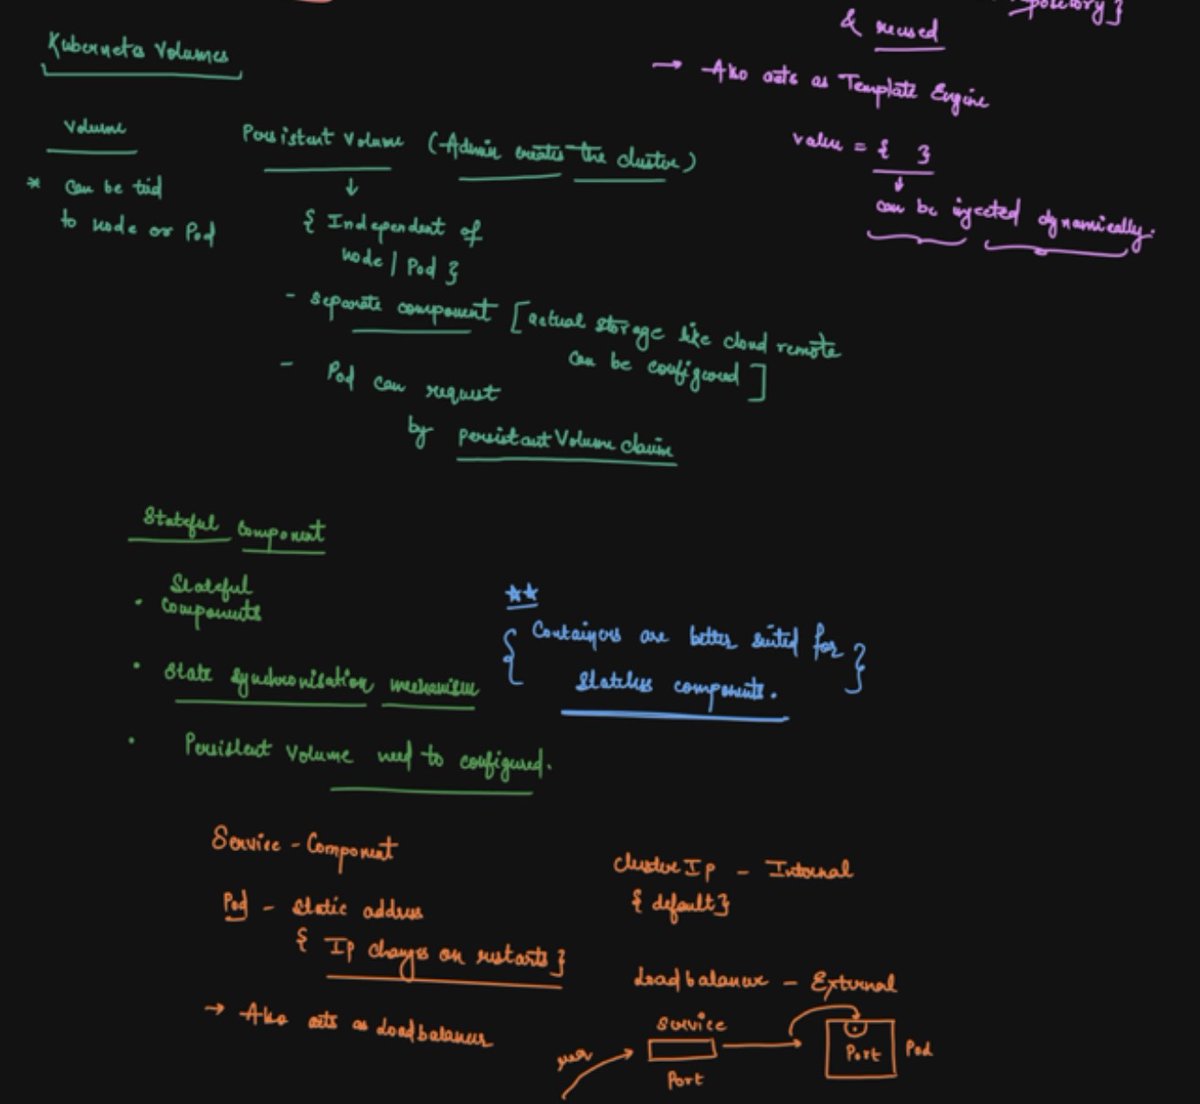 & reused
→ Also acts as Template Engine
value = { }
can be injected dynamically.
Kubernetes Volumes
Volume
* Can be tied
to node or Pod
Persistent Volume (Admin creates the cluster)
{ Independent of
node / Pod }
- Separate component [actual storage like cloud remote
can be configured]
- Pod can request
by Persistant Volume claim
Stateful Component
• Stateful
Components
• State synchronisation mechanism
• Persistent Volume need to configured.
**
{ Containers are better suited for
stateless components. }
Service - Component
Pod - Static address
{ Ip changes on restarts }
→ Also acts as Loadbalancer
Cluster Ip - Internal
{ default }
Loadbalancer - External
Service
user
Port
Port
Pod